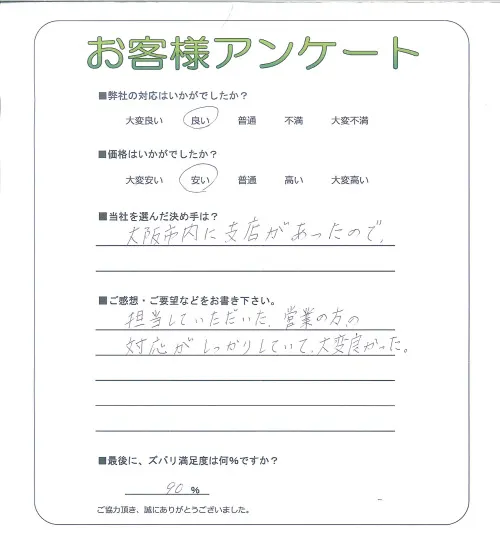 お客様アンケート
■弊社の対応はいかがでしたか？
大変良い 良い 普通 不満 大変不満
■価格はいかがでしたか？
大変安い 安い 普通 高い 大変高い
■当社を選んだ決め手は？
大阪市内に支店があったので、
■ご感想・ご要望などをお書き下さい。
担当していただいた、営業の方の
対応がしっかりしていて、大変良かった。
■最後に、ズバリ満足度は何％ですか？
90 ％
ご協力頂き、誠にありがとうございました。